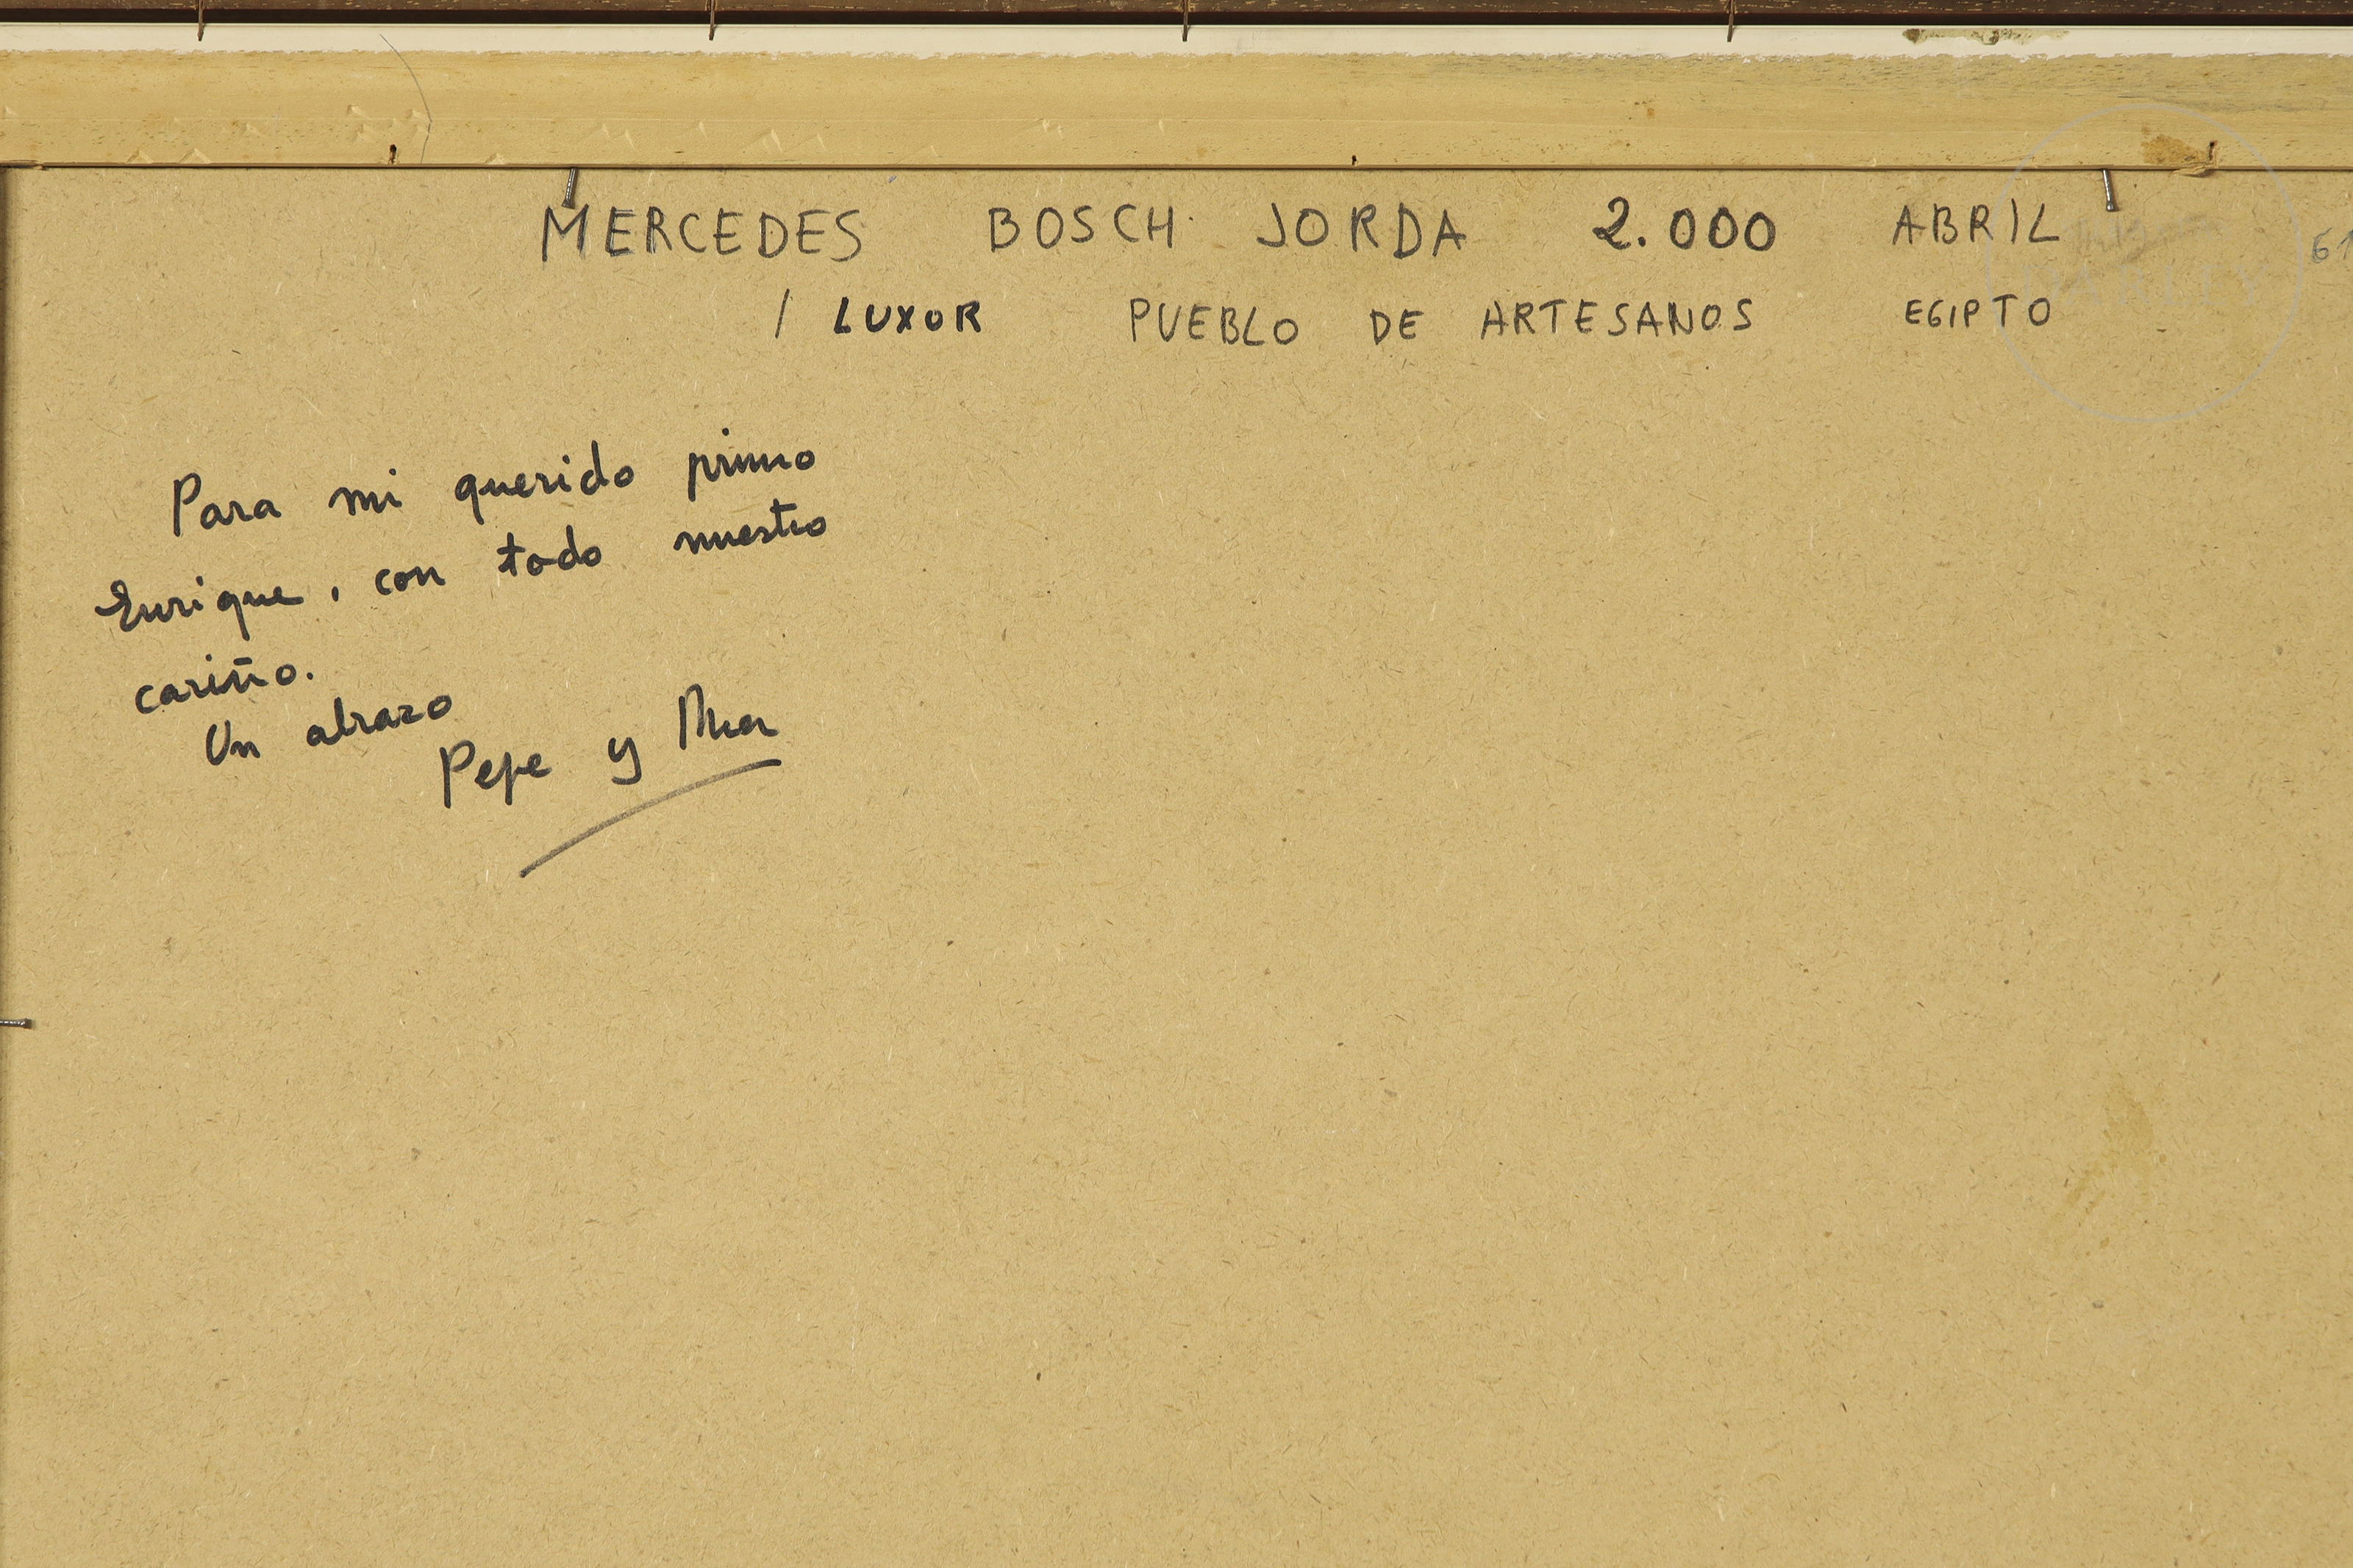 MERCEDES BOSCH JORDA 2.000 ABRIL
/ LUXOR PUEBLO DE ARTESANOS EGIPTO
Para mi querido primo
Enrique, con todo nuestro
cariño.
Un abrazo
Pepe y